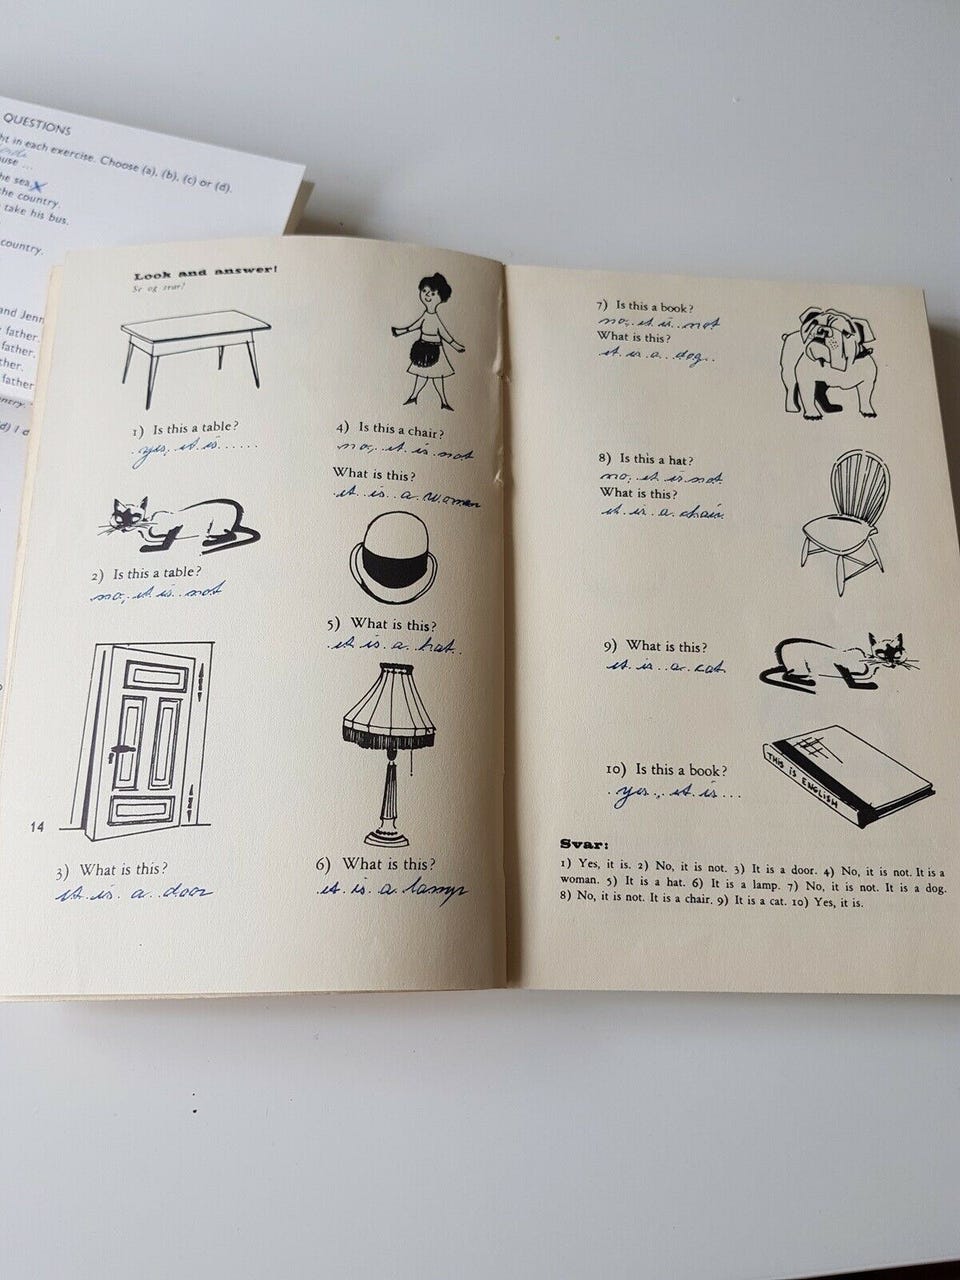 QUESTIONS
ht in each exercise. Choose (a), (b), (c) or (d).
use ...
he sea
the country.
take his bus.
country.
and Jenn
father.
father.
ther.
father
14
Look and answer!
Se og svar!
1) Is this a table?
yes, it is......
2) Is this a table?
no, it is not
3) What is this?
it is a door
4) Is this a chair?
no, it is not
What is this?
it is a woman
5) What is this?
it is a hat.
6) What is this?
it is a lamp
7) Is this a book?
no, it is not
What is this?
it is a dog.
8) Is this a hat?
no, it is not.
What is this?
it is a chair.
9) What is this?
it is a cat.
10) Is this a book?
yes, it is...
THIS IS ENGLISH
Svar:
1) Yes, it is. 2) No, it is not. 3) It is a door. 4) No, it is not. It is a
woman. 5) It is a hat. 6) It is a lamp. 7) No, it is not. It is a dog.
8) No, it is not. It is a chair. 9) It is a cat. 10) Yes, it is.